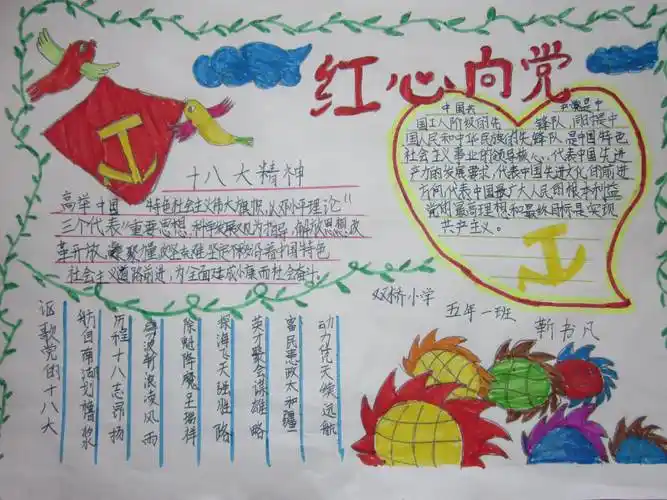 红心向党
十八大精神
高举中国 特色社会主义伟大旗帜,以邓小平理论"
三个代表"重要思想,科学发展观为指导,解放思想,改
革开放,凝聚 量,攻坚 坚定 沿着中国特色
社会主义道路前进,为全面建成小康 社会奋斗
中国共 是中
国工人阶级的先 锋队,同时是中
国人民和中华民族的先锋队,是中国特色
社会主义事业的领导核心,代表中国先进
产力的发展要求,代表中国先进文化的前进
方向,代表中国最广大人民的根本利益
党的最高理想和最终目标是实现
共产主义。
双桥小学
五年一班
靳书凡
动力 天续远航
富民惠政太和疆
英才聚会谋雄略
探海飞天强壮路
除魑降魔呈瑞祥
新浪淡风雨
历程十八志昂扬
舫自南湖划 桨
讴歌党的十八大